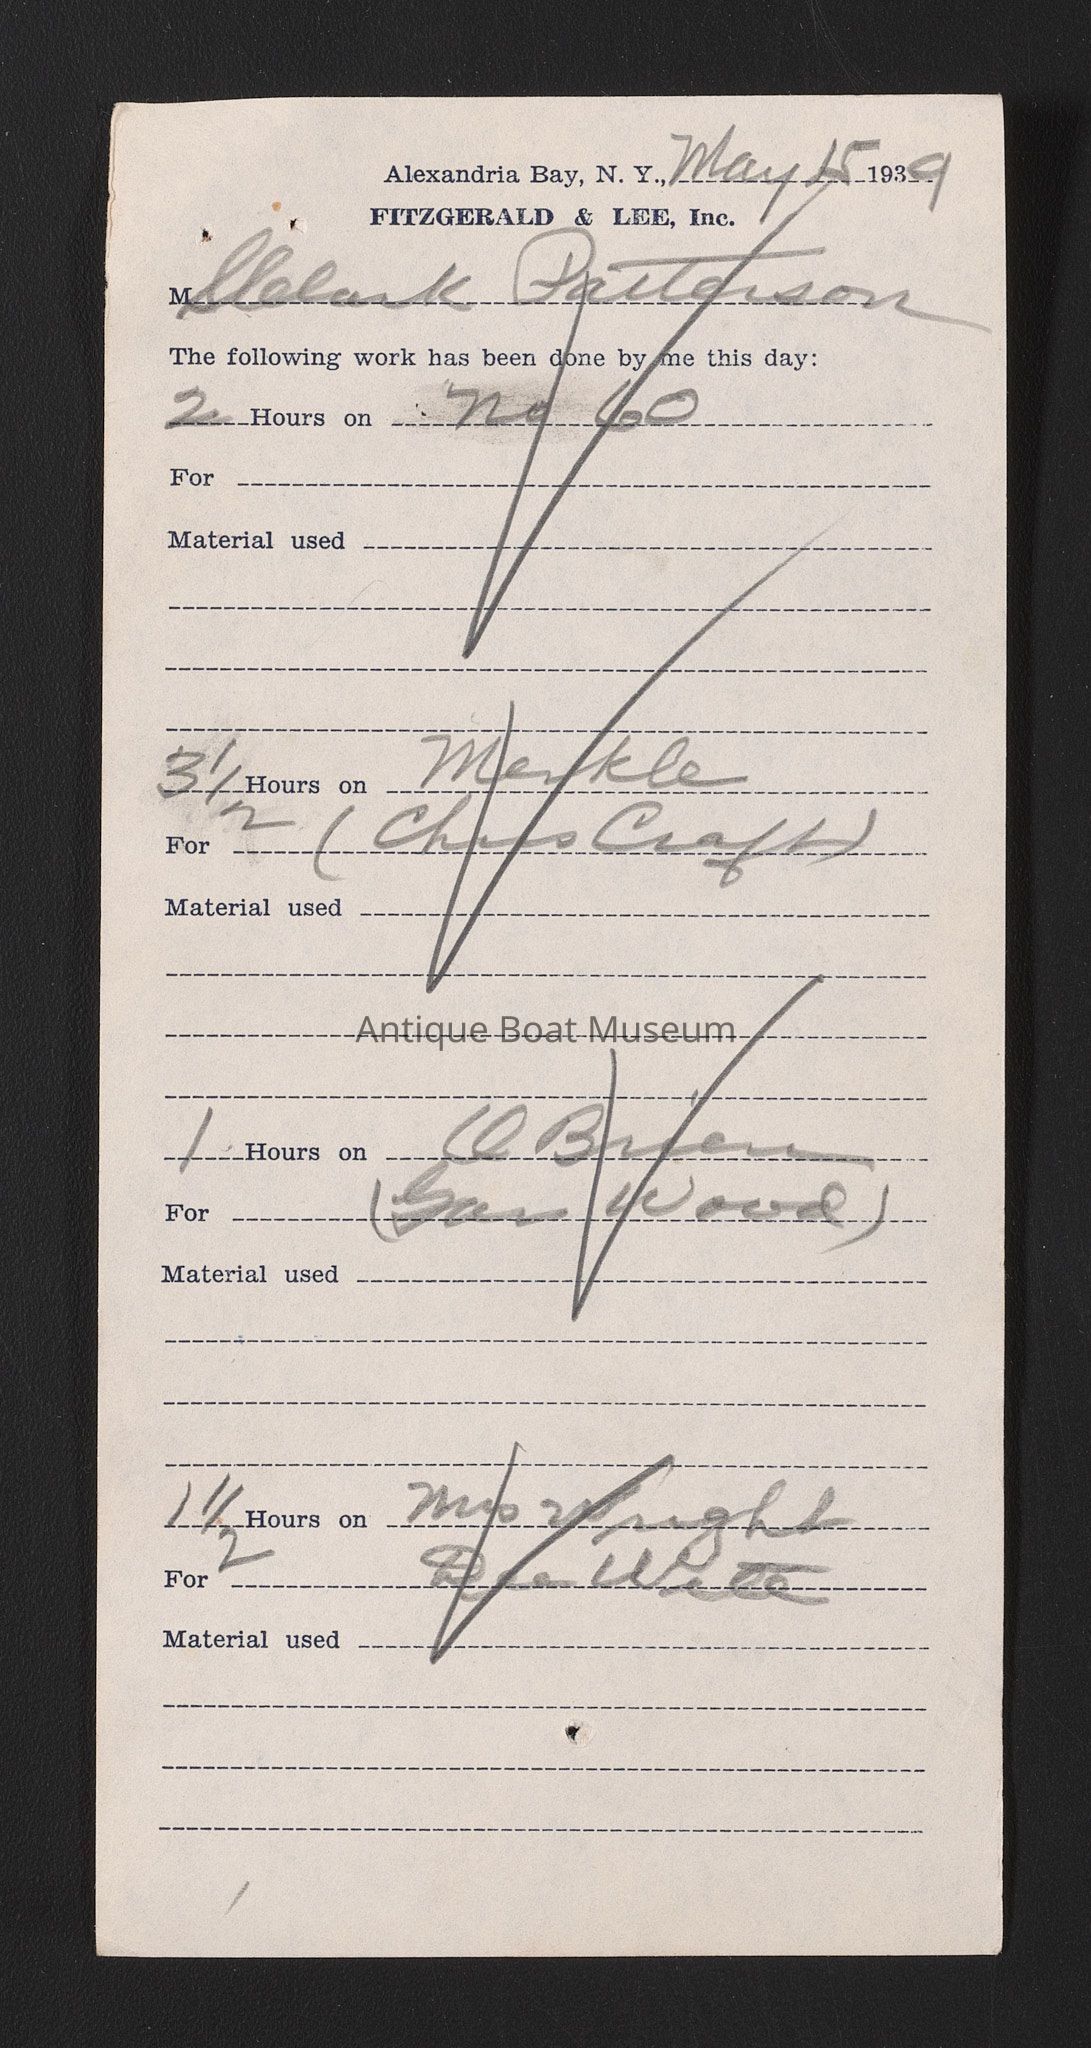 Alexandria Bay, N. Y., May 15 1939
FITZGERALD & LEE, Inc.
M Patterson
The following work has been done by me this day:
2 Hours on No 60
For
Material used
3 1/2 Hours on Merkle
For (Chris Craft)
Material used
Antique Boat Museum
1 Hours on O Brien
For (Gar Wood)
Material used
1 1/2 Hours on Mrs Wright
For Dee Wite
Material used